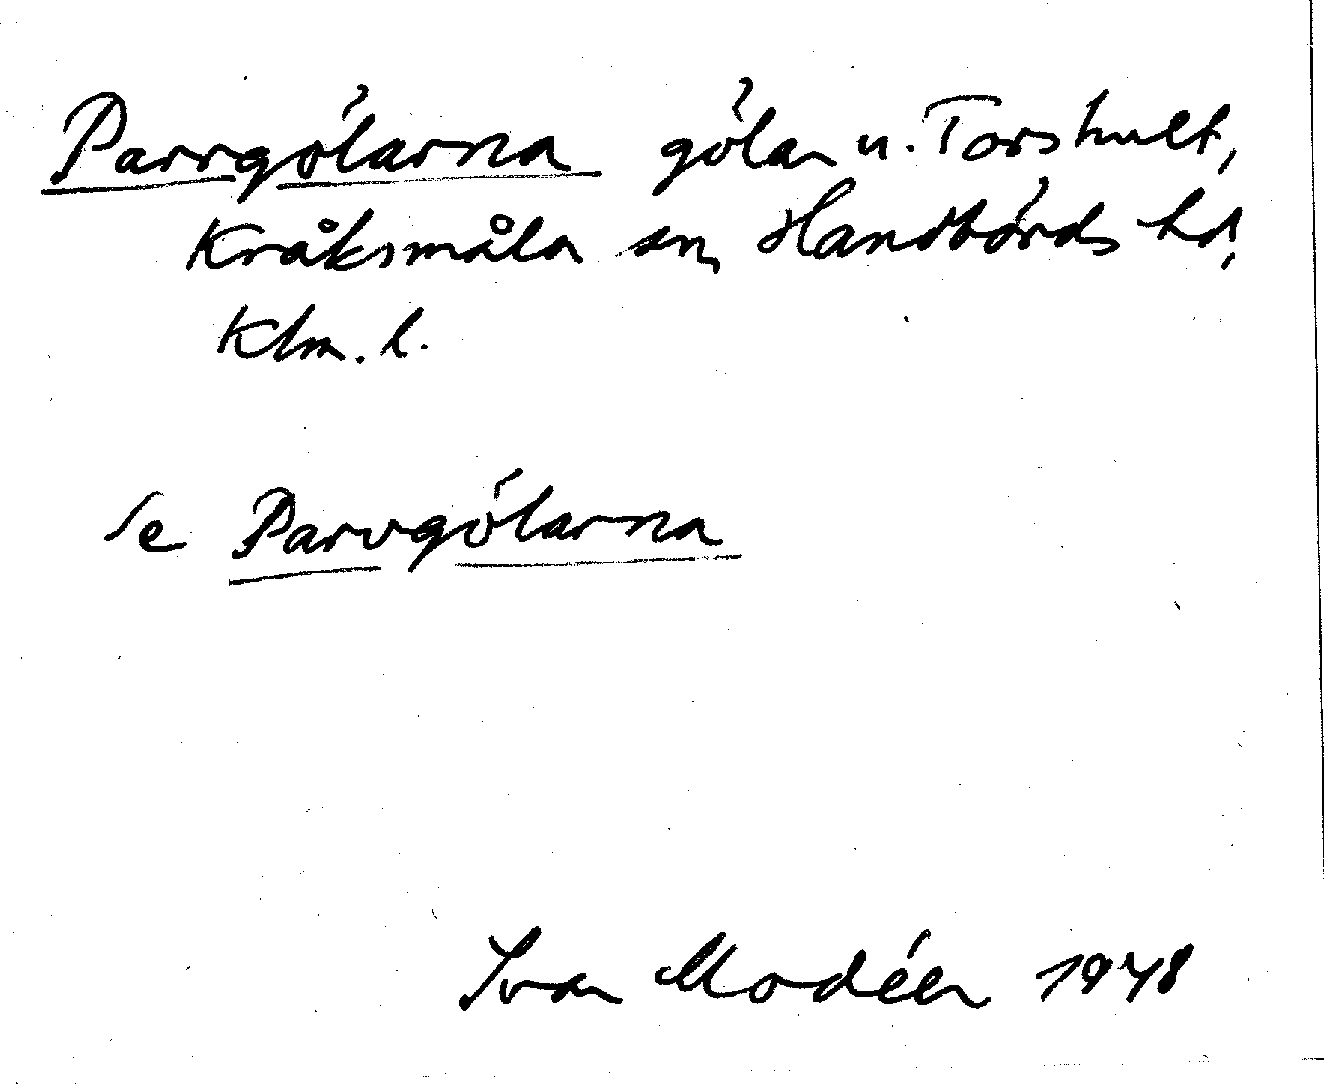 Parrgölarna gölar u. Torshult,
Kråksmåla sn, Handbörds hd,
Klm. l.
Se Parvgölarna
Ivar Modéer 1948